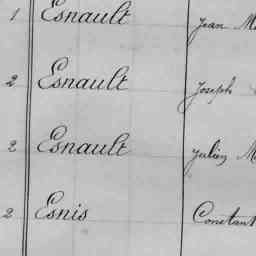 1 Esnault Jean M
2 Esnault Joseph
2 Esnault Julien M
2 Esnis Constant